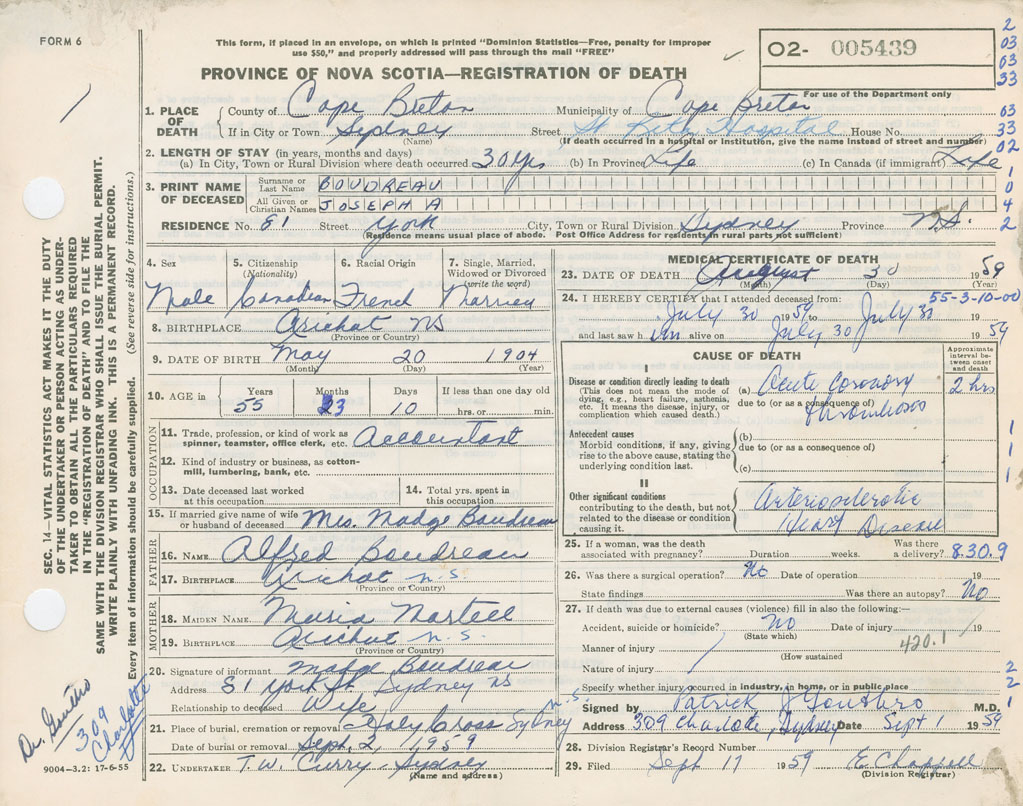 FORM 6
This form, if placed in an envelope, on which is printed "Dominion Statistics—Free, penalty for improper
use $50," and properly addressed will pass through the mail "FREE"
PROVINCE OF NOVA SCOTIA—REGISTRATION OF DEATH
O2- 005439
For use of the Department only
2
03
03
33
03
33
02
1
0
4
2
1. PLACE OF DEATH County of Cape Breton Municipality of Cape Breton
If in City or Town Sydney Street St. Hospital House No.
(Name) (If death occurred in a hospital or institution, give the name instead of street and number)
2. LENGTH OF STAY (in years, months and days)
(a) In City, Town or Rural Division where death occurred 30 yrs (b) In Province Life (c) In Canada (if immigrant) Life
3. PRINT NAME OF DECEASED Surname or Last Name BOUDREAU
All Given or Christian Names JOSEPH A
RESIDENCE No. 81 Street York City, Town or Rural Division Sydney Province N.S.
(Residence means usual place of abode. Post Office Address for residents in rural parts not sufficient)
4. Sex 5. Citizenship (Nationality) 6. Racial Origin 7. Single, Married, Widowed or Divorced (write the word)
Male Canadian French Married
8. BIRTHPLACE Arichat NS
(Province or Country)
9. DATE OF BIRTH May 20 1904
(Month) (Day) (Year)
10. AGE in Years Months Days If less than one day old
55 3 10 hrs. or min.
OCCUPATION
11. Trade, profession, or kind of work as spinner, teamster, office clerk, etc. Accountant
12. Kind of industry or business, as cotton-mill, lumbering, bank, etc.
13. Date deceased last worked at this occupation 14. Total yrs. spent in this occupation
15. If married give name of wife or husband of deceased Mrs. Madge Boudreau
FATHER
16. NAME Alfred Boudreau
17. BIRTHPLACE Arichat n.s.
(Province or Country)
MOTHER
18. MAIDEN NAME Maria Martell
19. BIRTHPLACE Arichat n.s.
(Province or Country)
20. Signature of informant Madge Boudreau
Address 81 York St. Sydney NS
Relationship to deceased Wife
21. Place of burial, cremation or removal Holy Cross Sydney n.s.
Date of burial or removal Sept. 2, 1959
22. UNDERTAKER T.W. Curry - Sydney
(Name and address)
MEDICAL CERTIFICATE OF DEATH
23. DATE OF DEATH August 30 1959
(Month) (Day) (Year)
55-3-10-00
24. I HEREBY CERTIFY that I attended deceased from:
July 30 1959 to July 30
and last saw him alive on July 30 1959
CAUSE OF DEATH
Approximate interval between onset and death
I
Disease or condition directly leading to death
(This does not mean the mode of dying, e.g., heart failure, asthenia, etc. It means the disease, injury, or complication which caused death.)
(a) Acute Coronary 2 hrs
due to (or as a consequence of)
thrombosis
Antecedent causes
Morbid conditions, if any, giving rise to the above cause, stating the underlying condition last.
(b)
due to (or as a consequence of)
(c)
1
1
1
II
Other significant conditions
contributing to the death, but not related to the disease or condition causing it.
Arteriosclerotic
Heart Disease
25. If a woman, was the death associated with pregnancy? Duration weeks. Was there a delivery? 830.9
26. Was there a surgical operation? No Date of operation 19
State findings Was there an autopsy? No
27. If death was due to external causes (violence) fill in also the following:—
Accident, suicide or homicide? NO Date of injury 19
(State which)
Manner of injury 420.1
(How sustained
Nature of injury
Specify whether injury occurred in industry, in home, or in public place
2
2
1
Signed by Patrick J Gouthro M.D.
Address 309 Charlotte, Sydney Date Sept 1 1959
28. Division Registrar's Record Number
29. Filed Sept 17 1959 E Chappell
(Division Registrar)
SEC. 14—VITAL STATISTICS ACT MAKES IT THE DUTY
OF THE UNDERTAKER OR PERSON ACTING AS UNDER-
TAKER TO OBTAIN ALL THE PARTICULARS REQUIRED
IN THE "REGISTRATION OF DEATH" AND TO FILE THE
SAME WITH THE DIVISION REGISTRAR WHO SHALL ISSUE THE BURIAL PERMIT.
WRITE PLAINLY WITH UNFADING INK. THIS IS A PERMANENT RECORD.
Every item of information should be carefully supplied. (See reverse side for instructions.)
Dr. Gouthro
309
Charlotte
9004-3.2: 17-6-55